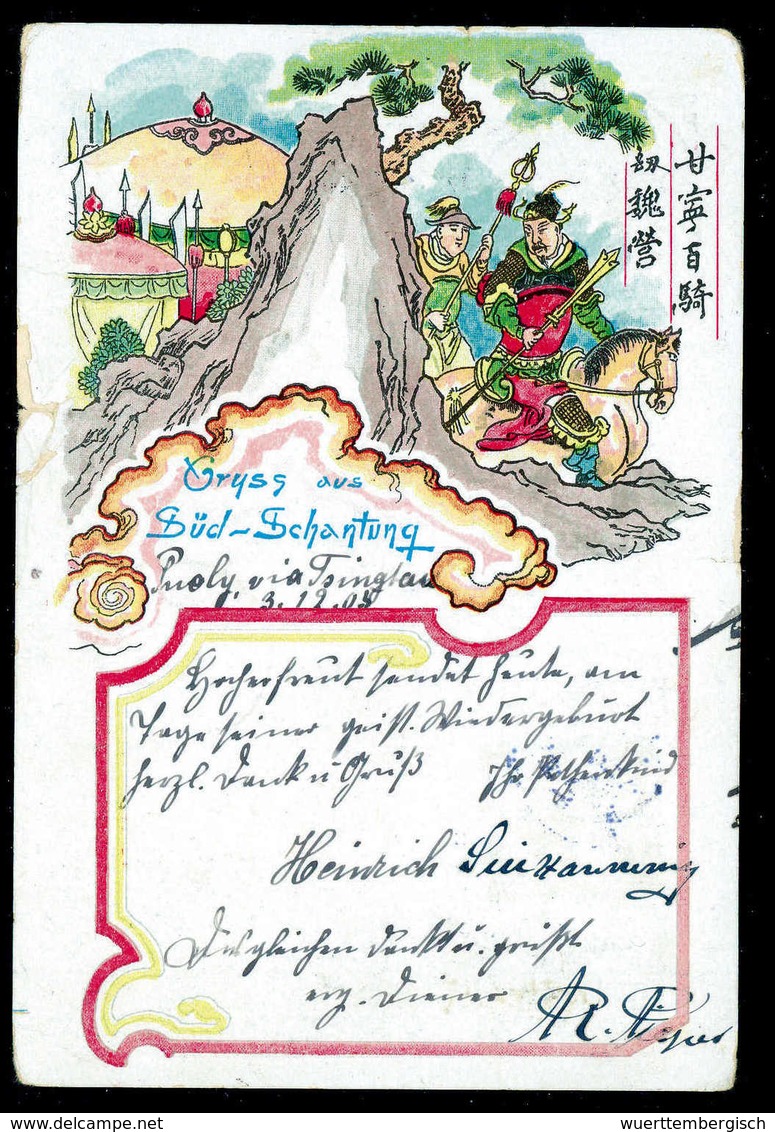 甘寧百騎
劫魏營
Gruss aus
Süd-Schantung
Puoly via Tsingtau
3.12.08
Hocherfreut sendet heute, am
Tage seiner geist. Wiedergeburt
herzl. Dank u Gruß Ihr Pathenkind
Heinrich
Desgleichen dankt u. grüßt
erg. Diener R.
Delcampe.net
wuerttembergisch